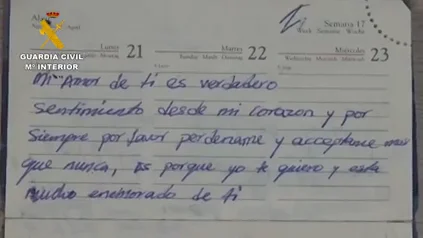 GUARDIA CIVIL
Mº INTERIOR
Semana 17
Lunes 21
Martes 22
Miércoles 23
Mi Amor de ti es verdadero
sentimiento desde mi corazon y por
siempre por favor perdename y acceptame mas
que nunca, es porque yo te quiero y esta
mucho enamorado de ti